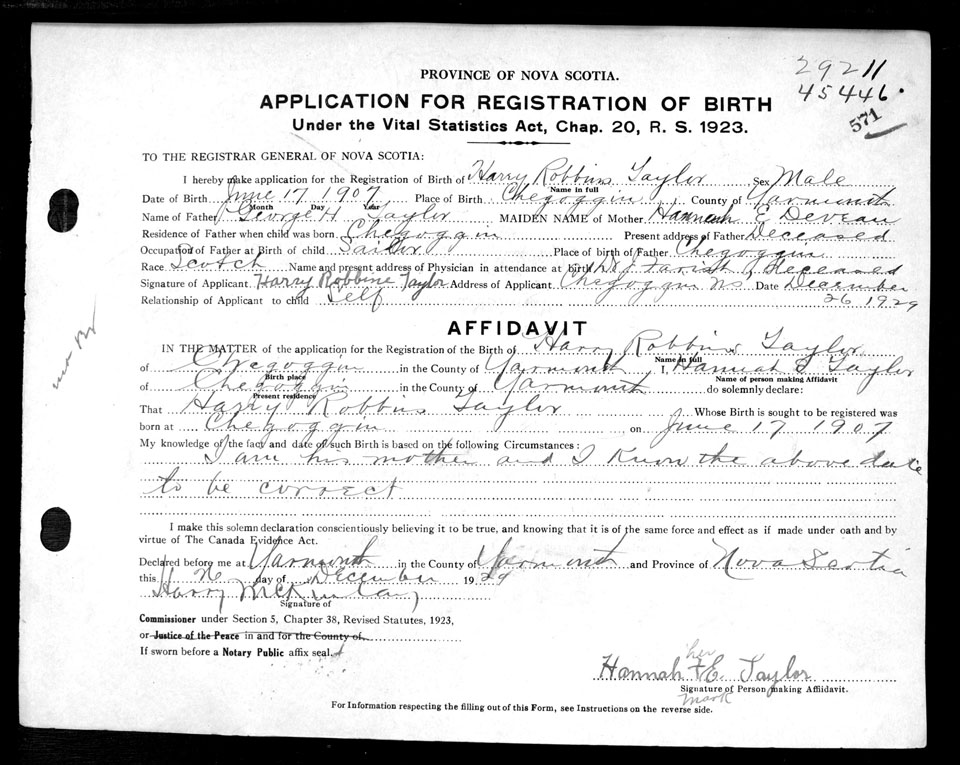 PROVINCE OF NOVA SCOTIA.
29211
45446.
571
APPLICATION FOR REGISTRATION OF BIRTH
Under the Vital Statistics Act, Chap. 20, R. S. 1923.
TO THE REGISTRAR GENERAL OF NOVA SCOTIA:
I hereby make application for the Registration of Birth of Harry Robbins Taylor Sex Male
Name in full
Date of Birth June 17 1907 Place of Birth Chegoggin County of Yarmouth
Month Day Year
Name of Father George H Taylor MAIDEN NAME of Mother Hannah E Deveau
Residence of Father when child was born Chegoggin Present address of Father Deceased
Occupation of Father at Birth of child Sailor Place of birth of Father Chegoggin
Race Scotch Name and present address of Physician in attendance at birth Deceased
Signature of Applicant Harry Robbins Taylor Address of Applicant Chegoggin NS Date December
Relationship of Applicant to child Self 26 1929
AFFIDAVIT
IN THE MATTER of the application for the Registration of the Birth of Harry Robbins Taylor
Name in full
of Chegoggin in the County of Yarmouth, I, Hannah E Taylor
Birth place Name of person making Affidavit
of Chegoggin in the County of Yarmouth do solemnly declare:
Present residence
That Harry Robbins Taylor Whose Birth is sought to be registered was
born at Chegoggin on June 17 1907
My knowledge of the fact and date of such Birth is based on the following Circumstances:
I am his mother and I know the above date
to be correct
I make this solemn declaration conscientiously believing it to be true, and knowing that it is of the same force and effect as if made under oath and by
virtue of The Canada Evidence Act.
Declared before me at Yarmouth in the County of Yarmouth and Province of Nova Scotia
this day of December 1929
Harry McKinlay
Signature of
Commissioner under Section 5, Chapter 38, Revised Statutes, 1923,
or Justice of the Peace in and for the County of
If sworn before a Notary Public affix seal.
her
Hannah + E. Taylor
Signature of Person making Affidavit.
mark
For Information respecting the filling out of this Form, see Instructions on the reverse side.